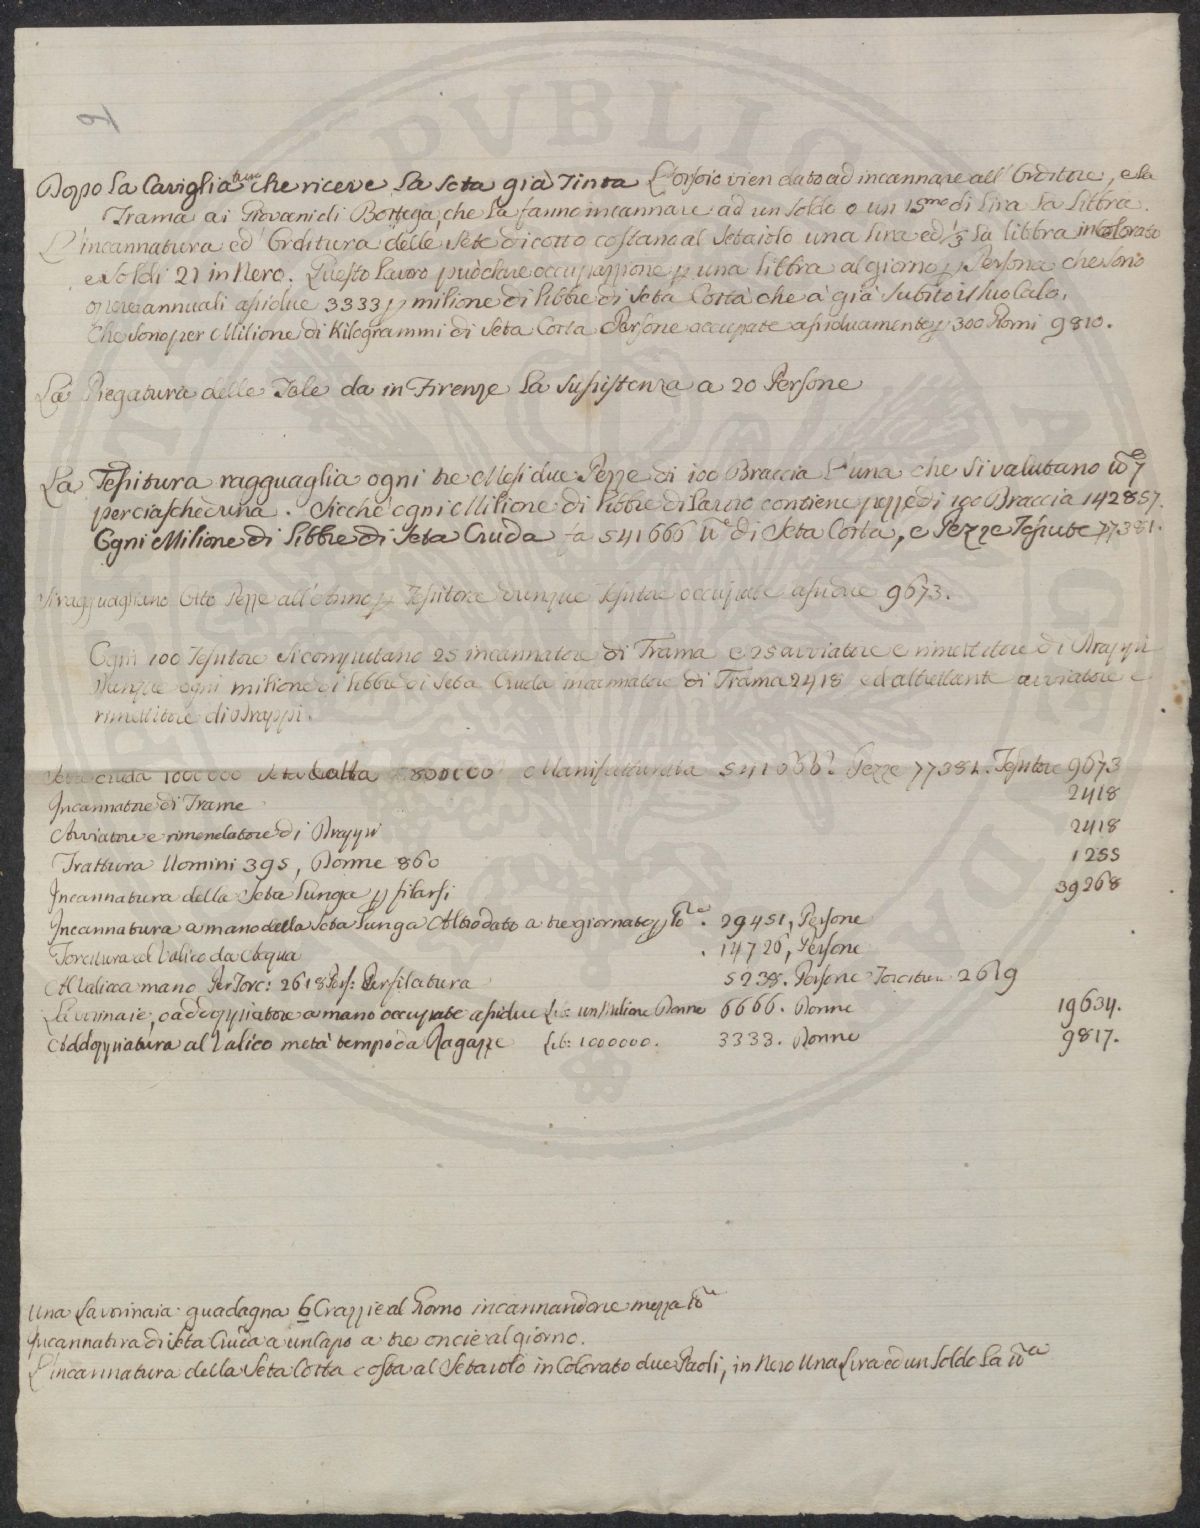 Dopo la Cavigliatura che riceve la Seta già Tinta L'orsoio vien dato ad incannare all'Orditore, e la
Trama ai Giovani di Bottega che la fanno incannare ad un Soldo o un 15mo di Lira la Libbra.
L'incannatura ed Orditura delle Sete di cotto costano al Setaiolo una lira ed 1/3 la libbra in Colorato
e Soldi 21 in Nero. Questo lavoro può dare occupazione p una libbra al giorno p Persona che sono
annuali assidue 3333 p milione di libbre di Seta Cotta che à già subito il suo Calo,
Che sono per Milione di Kilogrammi di Seta Cotta Persone occupate assiduamente p 300 Giorni 9810.
La Piegatura delle Tele da in Firenze la Sussistenza a 20 Persone
La Tessitura ragguaglia ogni tre Mesi due Pezze di 100 Braccia l'una che si valutano 7
per ciascheduna. Sicchè ogni Milione di Libbre di Lavoro contiene pezze di 100 Braccia 142857.
Ogni Milione di Libbre di Seta Cruda fa 541666 di Seta Cotta, e Pezze Tessute 77381.
Si ragguagliano Otto Pezze all'Anno p Tessitore dunque Tessitore occupate assidue 9673.
Ogni 100 Tessitore si computano 25 incannatore di Trama e 25 avviatore e rimettitore di Drappi
Dunque ogni milione di libbre di Seta Cruda incannatore di Trama 2418 ed altrettante avviatore e
rimettitore di Drappi.
Seta cruda 1000000 Seta Cotta 800000 Manifatturata 541666 Pezze 77381. Tessitore 9673
Incannatore di Trame 2418
Avviatore e rimendatore di Drappi 2418
Trattura Uomini 395, Donne 860 1255
Incannatura della Seta Lunga p filarsi 39268
Incannatura a mano della Seta Lunga Altro dato a tre giornate p . 29451, Persone
Torcitura al Valico da Acqua . 14726, Persone
Al Valico a mano Per Torc: 2618 Pers: Per filatura 5238. Persone Torcitura 2619
Lavorinaie, o addoppiatore a mano occupate assidue Lib: un Milione Donne 6666. Donne 19634.
Addoppiatura al Valico metà tempo da Ragazze Lib: 1000000. 3333. Donne 9817.
Una Lavorinaia guadagna 6 Crazzie al Giorno incannandone mezza
Incannatura di Seta Cruda a un Capo a tre oncie al giorno.
L'incannatura della Seta Cotta costa al Setaiolo in Colorato due Paoli, in Nero Una Lira ed un Soldo la